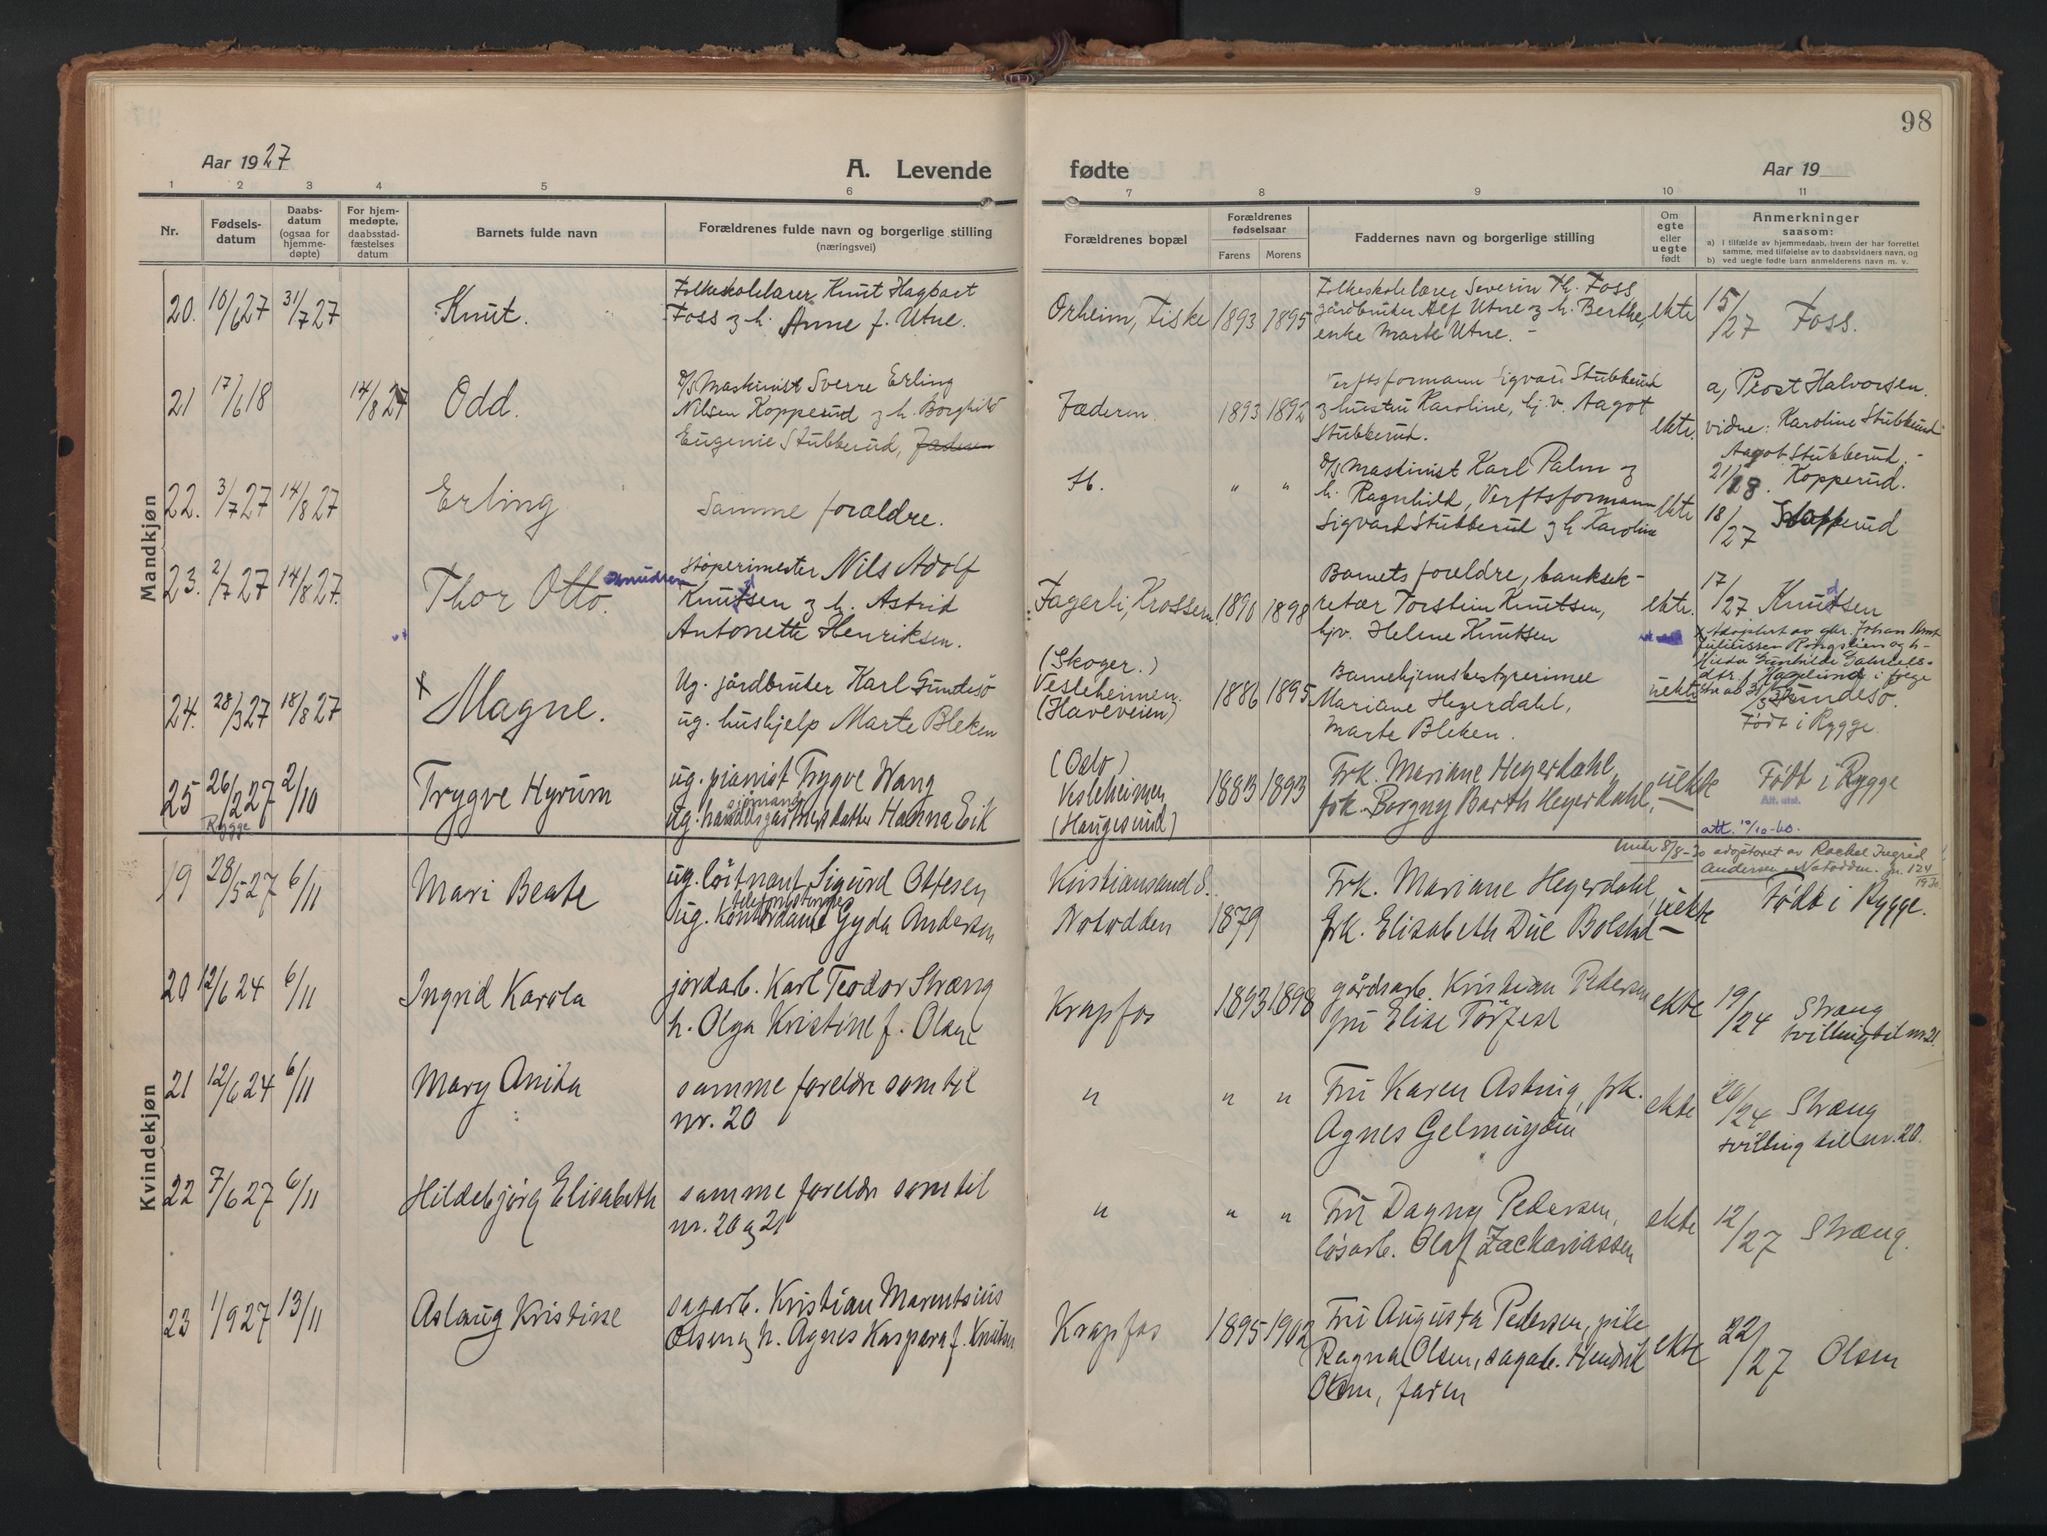 98
Aar 1927
A. Levende
fødte
Aar 19
1 2 3 4 5 6 7 8 9 10 11
Nr.
Fødsels-
datum
Daabs-
datum
(ogsaa for
hjemme-
døpte)
For hjem-
medøpte,
daabsstad-
fæstelses
datum
Barnets fulde navn
Forældrenes fulde navn og borgerlige stilling
(næringsvei)
Forældrenes bopæl
Forældrenes
fødselsaar
Farens Morens
Faddernes navn og borgerlige stilling
Om
egte
eller
uegte
født
Anmerkninger
saasom:
a) I tilfælde av hjemmedaab, hvem der har forrettet
samme, med tilføielse av to daabsvidners navn, og
b) ved uegte fødte barn anmelderens navn m. v.
Mandkjøn
20. 10/6 27 31/7 27
Knut.
Folkeskolelærer Knut Hagbart
Foss og h. Anne f. Utne.
Orheim, Fiske
1893 1895
Folkeskolelærer Severin Th. Foss
gårdbruker Alf Utne og h. Berthe,
enke Marte Utne. -
ekte
15/27 Foss.
21 17/6 18 14/8 27
Odd.
D/S Maskinist Sverre Erling
Nilsen Kopperud og h. Borghild
Eugenie Stubberud,
Fæderen.
1893 1892
Verftsformann Sigvard Stubberud
og hustru Karoline, hj.v. Aagot
Stubberud.
ekte.
a, Prost Halvorsen.
vidne: Karoline Stubberud
Aagot Stubberud. -
21/18. Kopperud.
22. 3/7 27 14/8 27
Erling
Samme forældre.
" "
D/S Maskinist Karl Palm og
h. Ragnhild, Verftsformann
Sigvard Stubberud og h. Karoline
ekte
18/27
23. 2/7 27 14/8 27.
Thor Otto.
Støperimester Nils Adolf
Knutsen og h. Astrid
Antonette Henriksen.
Fagerli, Krossern.
1890 1898
Barnets forældre, banksek-
retær Torstein Knutsen,
hjv. Helene Knutsen
ekte.
17/27 Knudsen
24. 28/3 27 18/8 27
x Magne.
Ug. jårdbruker Karl Gundesø
ug. hushjelp Marte Bleken
(Skoger.)
Vesleheimen.
(Haveveien)
1886 1895
Barnehjemsbestyrerinne
Mariane Heyerdahl,
Marte Bleken.
uekte
x Adoptert av gbr. Johan
Gundesø.
Født i Rygge.
25 26/2 27 2/10
Rygge
Trygve Hyrum
ug. pianist Trygve Wang
ug. Hanna Eik
(Oslo)
Vesleheimen
(Haugesund)
1883 1893
Frk. Mariane Heyerdahl,
frk. Borgny Barth Heyerdahl,
uekte
Født i Rygge
Att. utst.
att. 10/10-60.
Kvindekjøn
19 28/5 27 6/11
Mari Beate
ug. løitnant Sigurd Ottesen
ug. kontordame Gyda Andersen
Kristiansand S.
Notodden
1879
Frk. Mariane Heyerdahl,
frk. Elisabeth Due Bolstad
uekte
Under 8/8-30 adoptert av Rachel Ingrid
Andersen, Notodden. jn. 124/1930
Født i Rygge.
20 12/6 24 6/11
Ingrid Karola
jordarb. Karl Teodor Stræng
h. Olga Kristine f. Olsen
Krapfos
1893 1898
gårdsarb. Kristian Pedersen
fru Elise Torfest
ekte
19/24 Stræng
tvilling til nr. 21.
21 12/6 24 6/11
Mary Anita
samme foreldre som til
nr. 20
" " "
Fru Karen Astrug, frk.
Agnes Gelmuyden
ekte
20/24 Stræng
tvilling til nr. 20.
22 7/6 27 6/11
Hildebjørg Elisabeth
samme foreldre som til
nr. 20 og 21
" " "
Fru Dagny Pedersen,
løsarb. Olaf Zackariassen
ekte
12/27 Stræng.
23 1/9 27 13/11
Aslaug Kristine
sagarb. Kristian Marentsius
Olsen og h. Agnes Kaspara f. Knutsen
Krapfos
1895 1902
Fru Augusta Pedersen, pike
Ragna Olsen, sagarb. Hendrik
Olsen, faren
ekte
22/27 Olsen